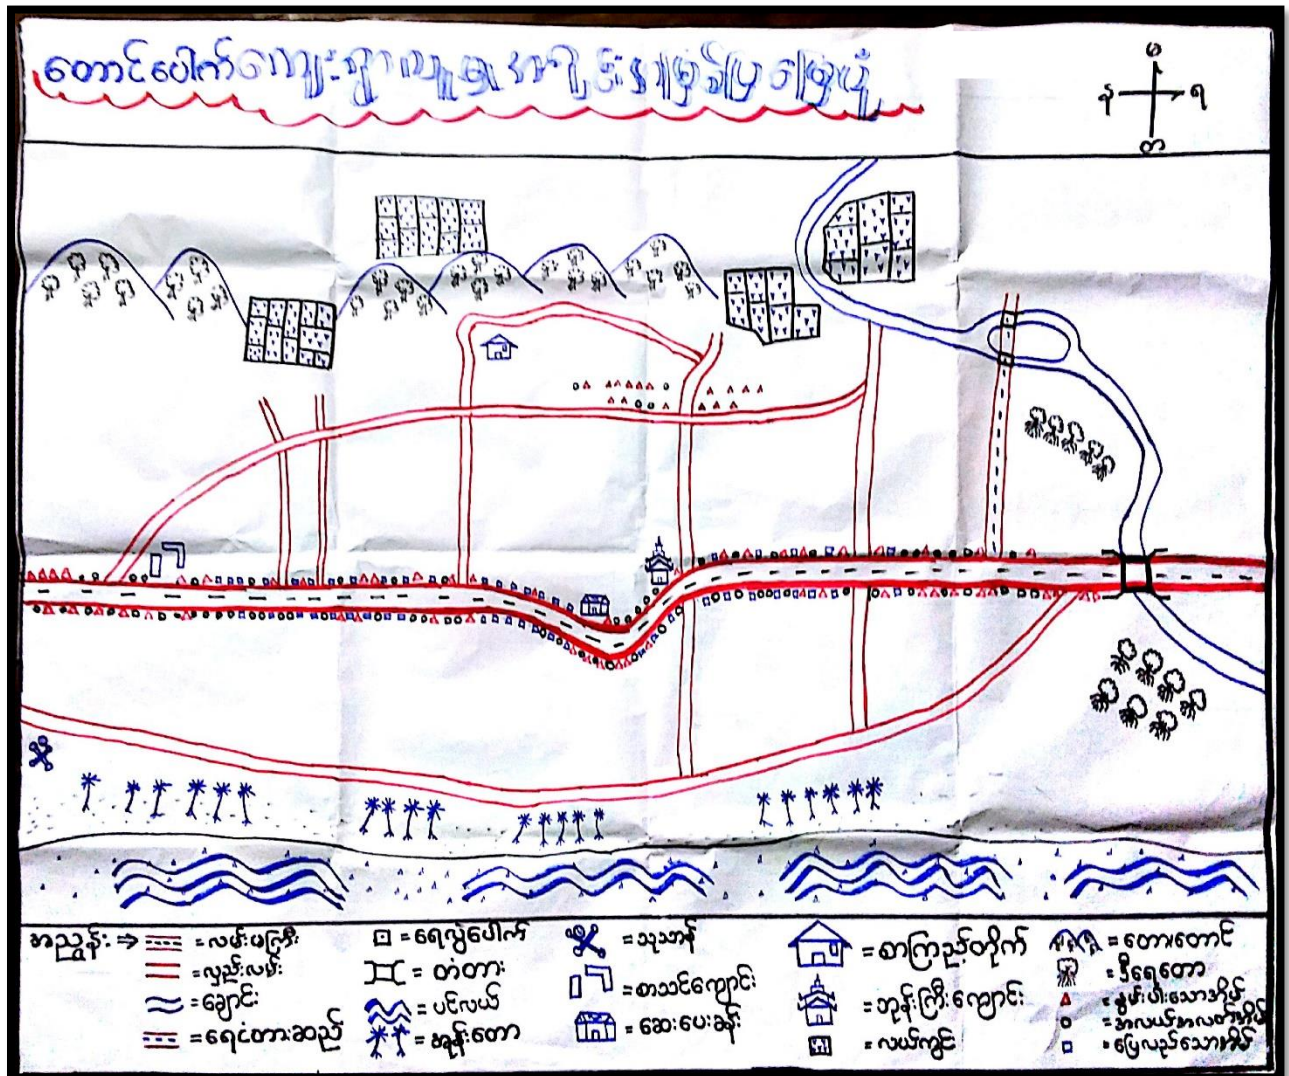 တောင်ပေါက်ကျေးရွာ လူမှုအရင်းအမြစ်ပြမြေပုံ
မ
န ရ
တ
အညွှန်း ⇒ = လမ်းမကြီး
= လှည်းလမ်း
= ချောင်း
= ရေငံတားဆည်
= ရေလွှဲပေါက်
= တံတား
= ပင်လယ်
= အုန်းတော
= သုသာန်
= စာသင်ကျောင်း
= ဆေးပေးခန်း
= စာကြည့်တိုက်
= ဘုန်းကြီးကျောင်း
= လယ်ကွင်း
= တောတောင်
= ဒီရေတော
= နွမ်းပါးသောအိမ်
= အလယ်အလတ်အိမ်
= ပြေလည်သောအိမ်